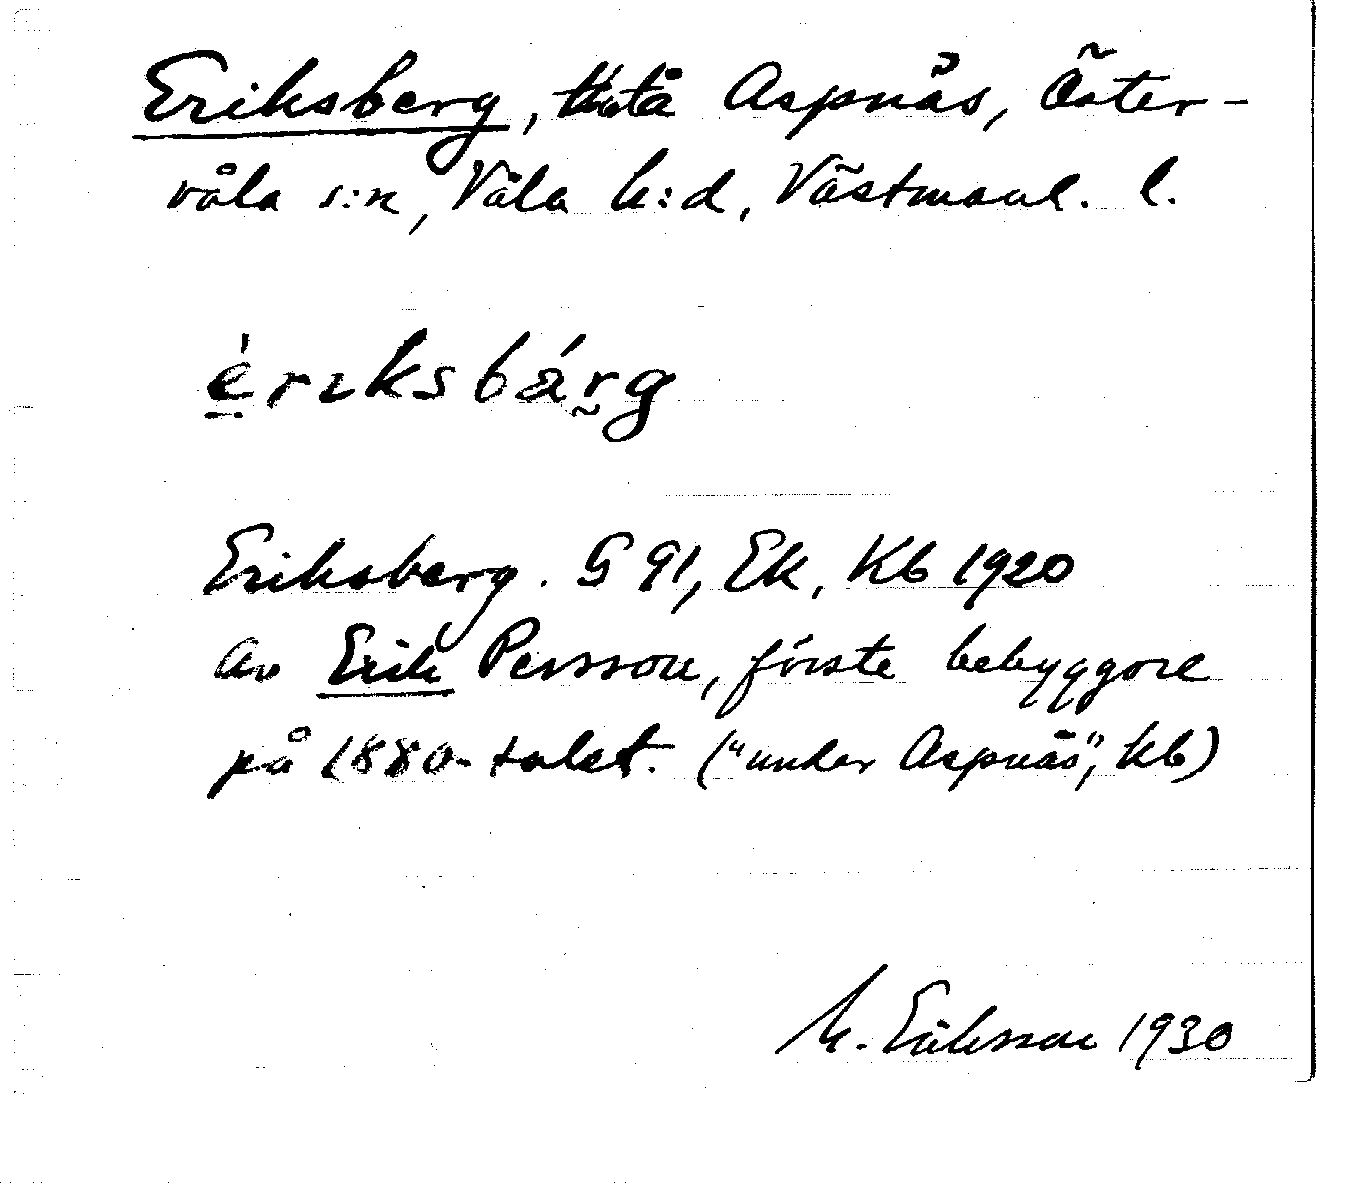 Eriksberg, på Aspnäs, Öster-
våla s:n, Våla h:d, Västmanl. l.
èrıksbárg
Eriksberg. G 91, Ek, Kb 1920
Av Erik Persson, förste bebyggare
på 1880-talet. ("under Aspnäs", Kb)
M. Eriksson 1930